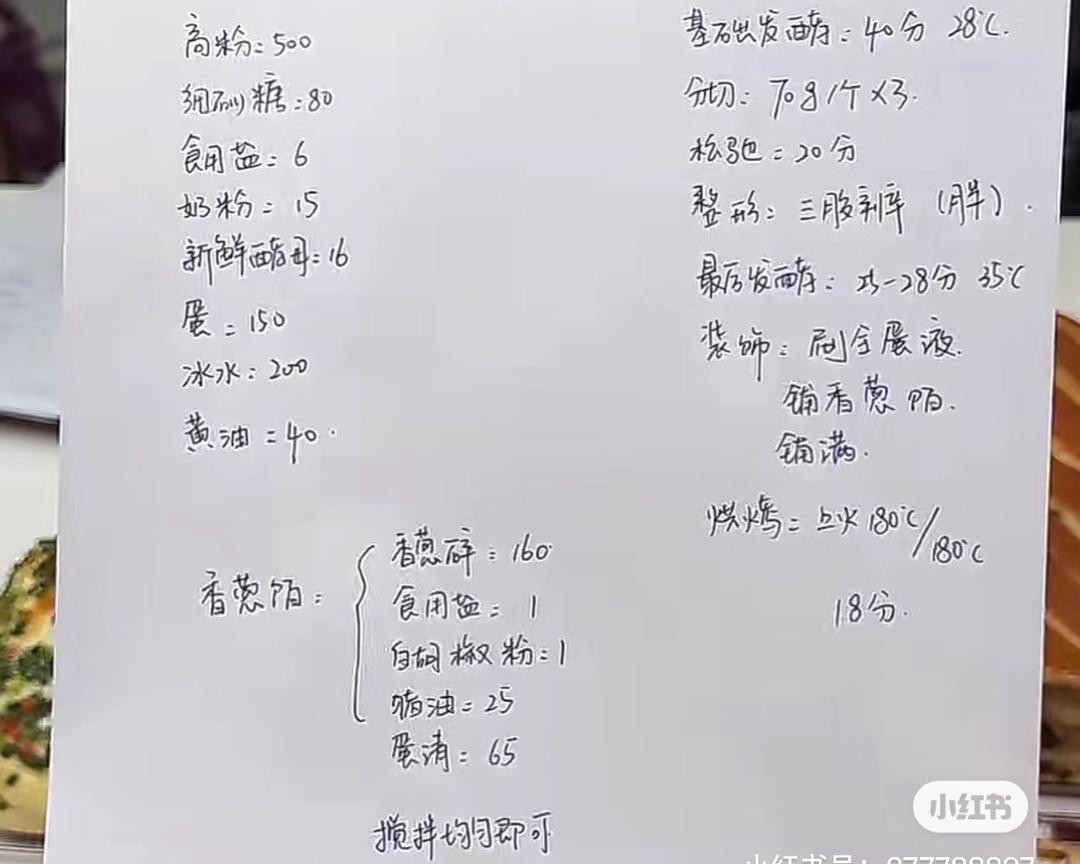 高粉:500
细砂糖:80
食用盐:6
奶粉:15
新鲜酵母:16
蛋:150
冰水:200
黄油:40.
香葱陷:
香葱碎:160
食用盐:1
白胡椒粉:1
猪油:25
蛋清:65
搅拌均匀即可
基础发酵:40分 28℃.
分切:70g1个×3.
松弛:20分
整形:三股辫(胖).
最后发酵:25-28分 35℃
装饰:刷全蛋液.
铺香葱陷.
铺满.
烘烤:上火180℃/180℃
18分.
小红书